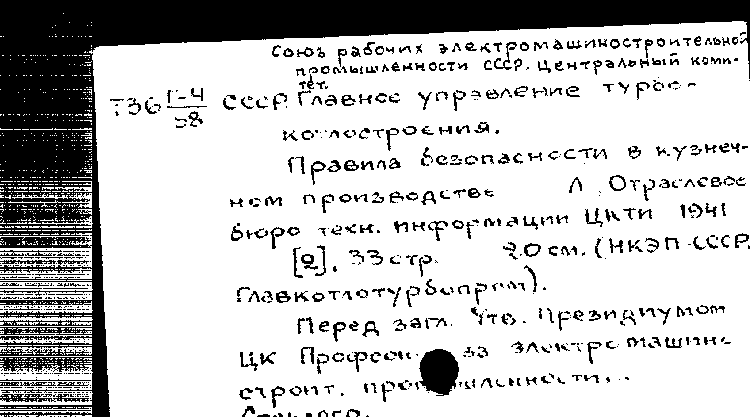 Союз рабочих электромашиностроительной
промышленности СССР. Центральный коми-
тет.
Т36 Г-4/58 СССР. Главное управление турбо-
котлостроения.
Правила безопасности в кузнеч-
ном производстве Л. Отраслевое
бюро техн. информации ЦКТИ 1941
[2], 33 стр. 20 см. (НКЭП-СССР.
Главкотлотурбопром).
Перед загл. Утв. Президиумом
ЦК Профсоюза электромашино-
строит. промышленности...